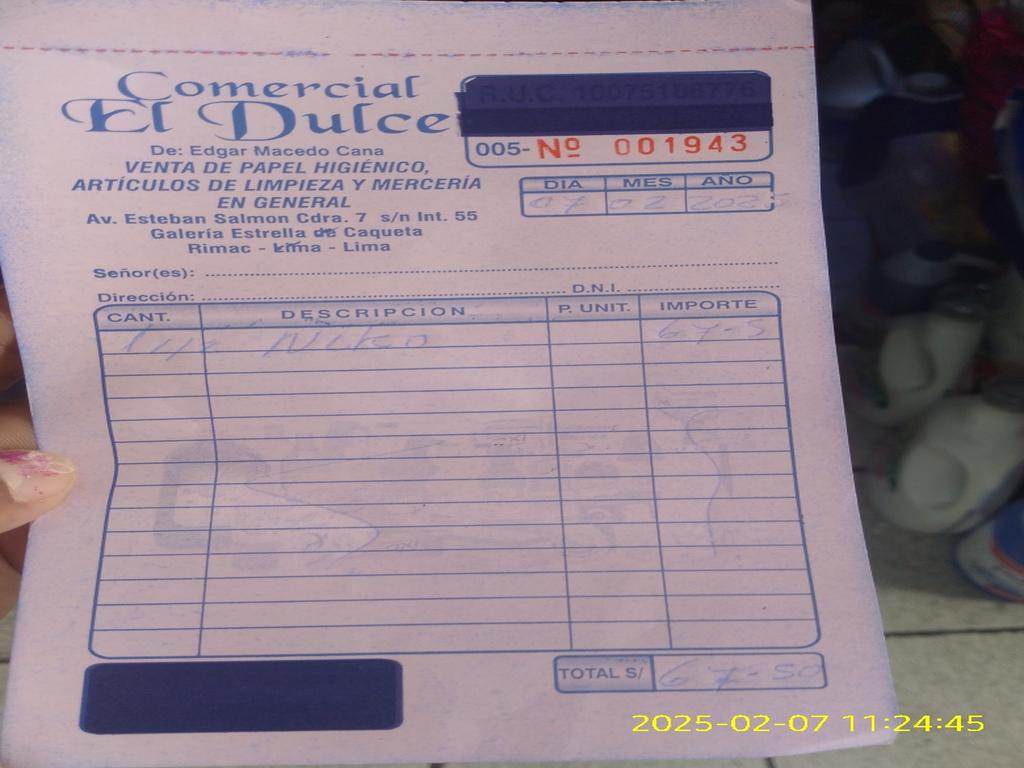 Comercial
El Dulce
De: Edgar Macedo Cana
VENTA DE PAPEL HIGIÉNICO,
ARTÍCULOS DE LIMPIEZA Y MERCERÍA
EN GENERAL
Av. Esteban Salmon Cdra. 7 s/n Int. 55
Galería Estrella de Caqueta
Rimac - Lima - Lima
R.U.C.
005- Nº 001943
DIA MES AÑO
07 02 2025
Señor(es):
Dirección: D.N.I.
CANT. DESCRIPCION P. UNIT. IMPORTE
67-5
TOTAL S/ 67-50
2025-02-07 11:24:45